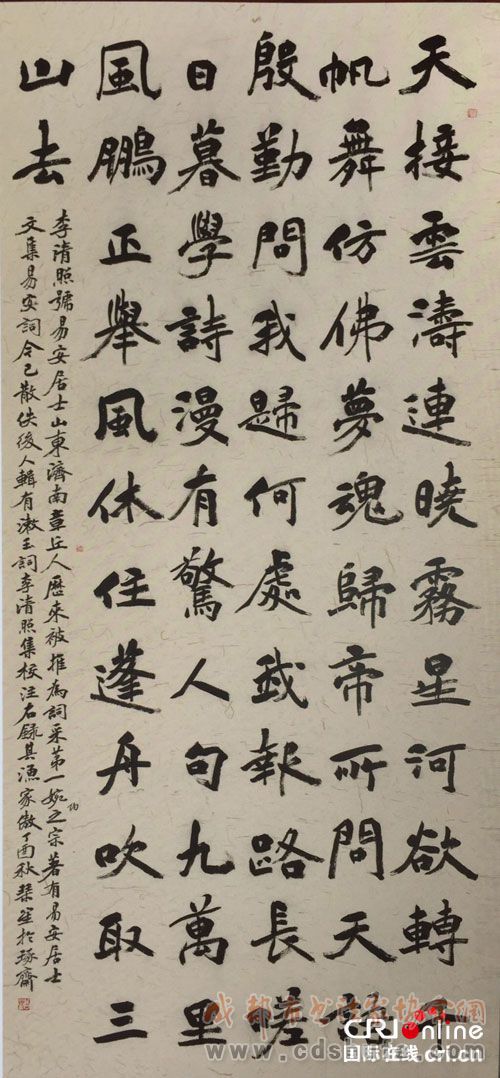 天接雲濤連曉霧星河欲轉千
帆舞仿佛夢魂歸帝所問天語
殷勤問我歸何處我報路長嗟
日暮學詩漫有驚人句九萬里
風鵬正舉風休住蓬舟吹取三
山去
李清照號易安居士山東濟南章丘人歷來被推為詞采第一婉約之宗著有易安居士
文集易安詞今已散佚後人輯有漱玉詞李清照集校注右錄其漁家傲丁酉秋於琢齋
成都市书法家协会网
CRI online
国际在线 cri.cn